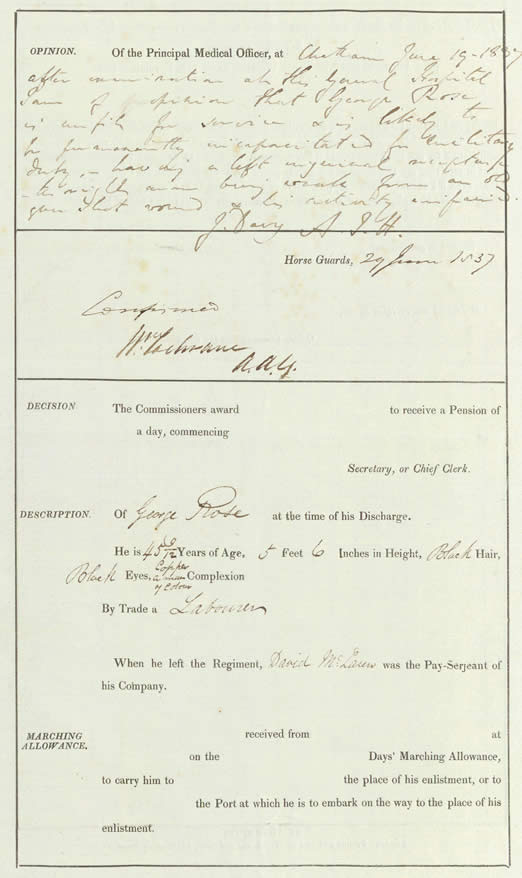 OPINION. Of the Principal Medical Officer, at Chatham June 19 - 1837
after examination at the General Hospital
I am of opinion that George Rose
is unfit for service & is likely to
be permanently incapacitated for military
duty, - having a left inguinal rupture &
his right arm being weak from an old
gun shot wound & his activity impaired.
J. Davy A. I. H.
Horse Guards, 29 June 1837
Confirmed
Wm. Cochrane
A.A.G.
DECISION The Commissioners award to receive a Pension of
a day, commencing
Secretary, or Chief Clerk.
DESCRIPTION. Of George Rose at the time of his Discharge.
He is 45 /12 Years of Age, 5 Feet 6 Inches in Height, Black Hair,
Black Eyes, Copper a man of Colour Complexion
By Trade a Labourer
When he left the Regiment, David McLaren was the Pay-Serjeant of
his Company.
MARCHING ALLOWANCE. received from at
on the Days' Marching Allowance,
to carry him to the place of his enlistment, or to
the Port at which he is to embark on the way to the place of his
enlistment.